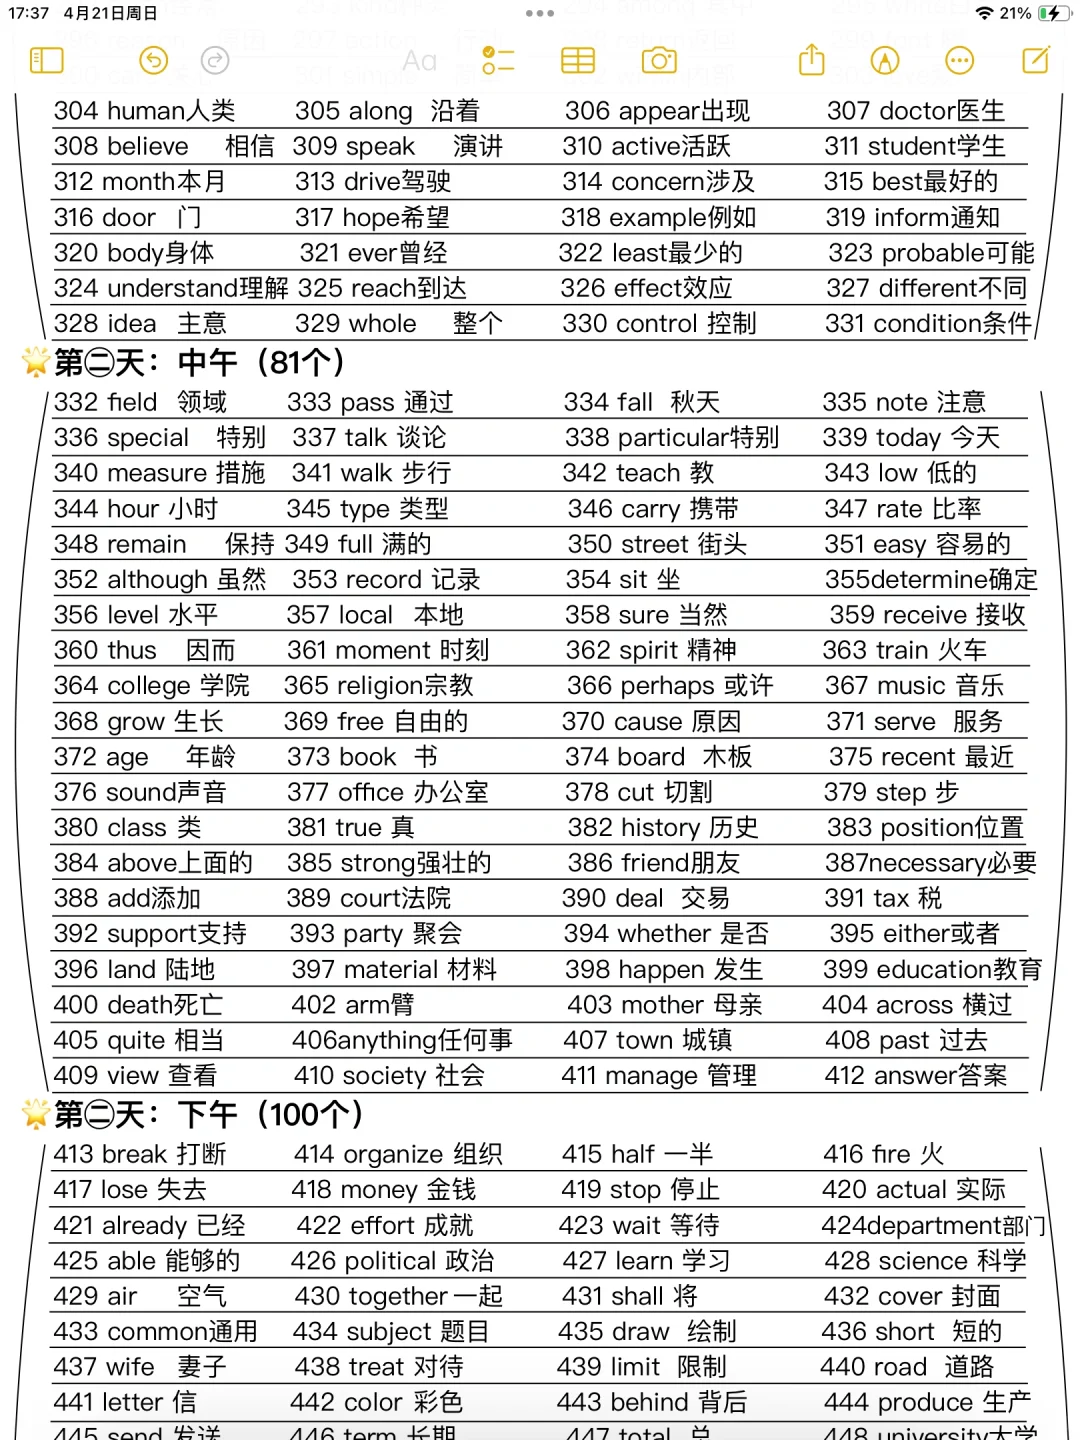 17:37 4月21日周日 21%
Aa
304 human人类 305 along 沿着 306 appear出现 307 doctor医生
308 believe 相信 309 speak 演讲 310 active活跃 311 student学生
312 month本月 313 drive驾驶 314 concern涉及 315 best最好的
316 door 门 317 hope希望 318 example例如 319 inform通知
320 body身体 321 ever曾经 322 least最少的 323 probable可能
324 understand理解 325 reach到达 326 effect效应 327 different不同
328 idea 主意 329 whole 整个 330 control 控制 331 condition条件
🌟第㊁天：中午（81个）
332 field 领域 333 pass 通过 334 fall 秋天 335 note 注意
336 special 特别 337 talk 谈论 338 particular特别 339 today 今天
340 measure 措施 341 walk 步行 342 teach 教 343 low 低的
344 hour 小时 345 type 类型 346 carry 携带 347 rate 比率
348 remain 保持 349 full 满的 350 street 街头 351 easy 容易的
352 although 虽然 353 record 记录 354 sit 坐 355determine确定
356 level 水平 357 local 本地 358 sure 当然 359 receive 接收
360 thus 因而 361 moment 时刻 362 spirit 精神 363 train 火车
364 college 学院 365 religion宗教 366 perhaps 或许 367 music 音乐
368 grow 生长 369 free 自由的 370 cause 原因 371 serve 服务
372 age 年龄 373 book 书 374 board 木板 375 recent 最近
376 sound声音 377 office 办公室 378 cut 切割 379 step 步
380 class 类 381 true 真 382 history 历史 383 position位置
384 above上面的 385 strong强壮的 386 friend朋友 387necessary必要
388 add添加 389 court法院 390 deal 交易 391 tax 税
392 support支持 393 party 聚会 394 whether 是否 395 either或者
396 land 陆地 397 material 材料 398 happen 发生 399 education教育
400 death死亡 402 arm臂 403 mother 母亲 404 across 横过
405 quite 相当 406anything任何事 407 town 城镇 408 past 过去
409 view 查看 410 society 社会 411 manage 管理 412 answer答案
🌟第㊁天：下午（100个）
413 break 打断 414 organize 组织 415 half 一半 416 fire 火
417 lose 失去 418 money 金钱 419 stop 停止 420 actual 实际
421 already 已经 422 effort 成就 423 wait 等待 424department部门
425 able 能够的 426 political 政治 427 learn 学习 428 science 科学
429 air 空气 430 together 一起 431 shall 将 432 cover 封面
433 common通用 434 subject 题目 435 draw 绘制 436 short 短的
437 wife 妻子 438 treat 对待 439 limit 限制 440 road 道路
441 letter 信 442 color 彩色 443 behind 背后 444 produce 生产
445 send 发送 446 term 长期 447 total 总 448 university大学